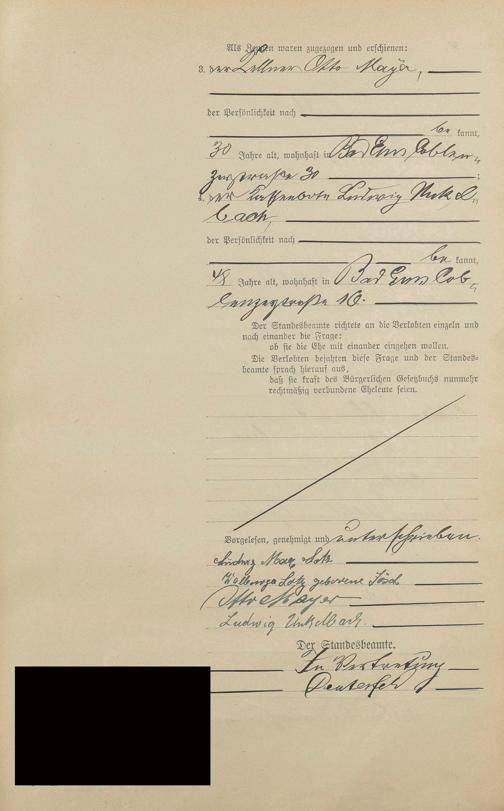 Als Zeugen waren zugezogen und erschienen:
3. der Kellner Otto Mayer,
der Persönlichkeit nach
be kannt,
30 Jahre alt, wohnhaft in Bad Ems Coblen-
zerstraße 30 ;
4. der Kassenbote Ludwig Unkel-
bach,
der Persönlichkeit nach
be kannt,
48 Jahre alt, wohnhaft in Bad Ems Cob-
lenzerstraße 16.
Der Standesbeamte richtete an die Verlobten einzeln und
nach einander die Frage:
ob sie die Ehe mit einander eingehen wollen.
Die Verlobten bejahten diese Frage und der Standes-
beamte sprach hierauf aus,
daß sie kraft des Bürgerlichen Gesetzbuchs nunmehr
rechtmäßig verbundene Eheleute seien.
Vorgelesen, genehmigt und unterschrieben.
Ludwig Max Lotz
Walburga Lotz geborene
Otto Mayer
Ludwig Unkelbach.
Der Standesbeamte.
In Vertretung